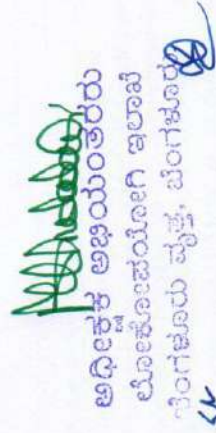 ಅಧೀಕ್ಷಕ ಅಭಿಯಂತರರು
ಲೋಕೋಪಯೋಗಿ ಇಲಾಖೆ
ಬೆಂಗಳೂರು ವೃತ್ತ, ಬೆಂಗಳೂರು